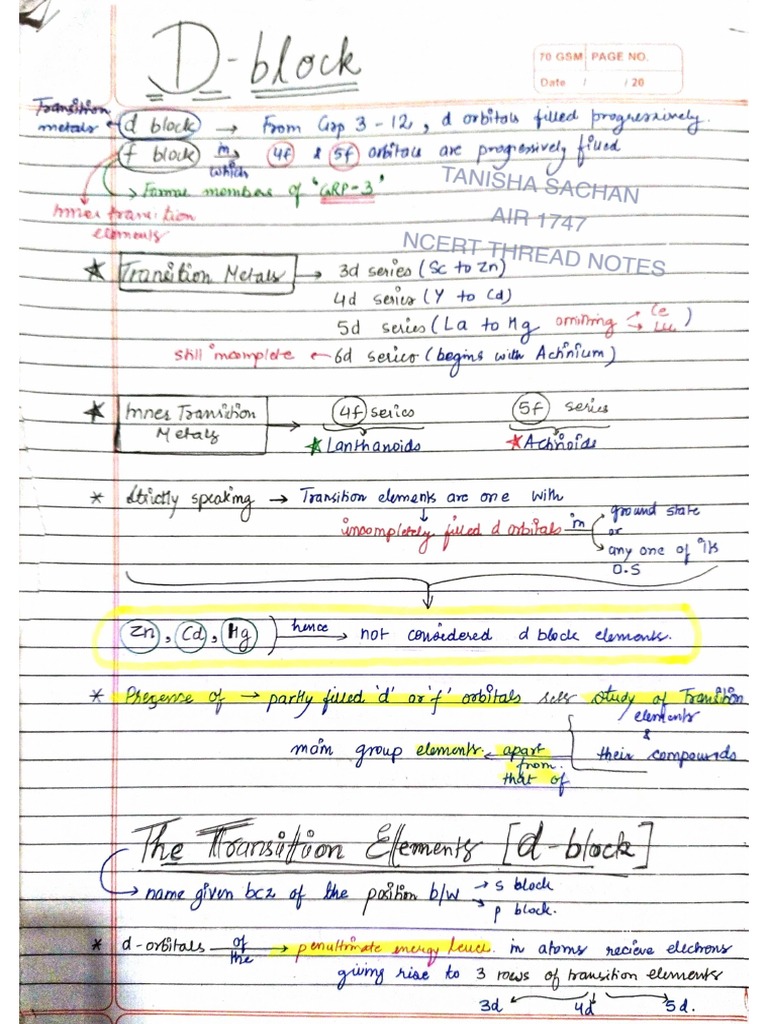 D-block
70 GSM PAGE NO.
Date / / 20
Transition metals ← d block → From Grp 3-12, d orbitals filled progressively.
f block in which 4f & 5f orbitals are progressively filled
→ Formal members of "GRP-3"
Inner transition elements
TANISHA SACHAN
AIR 1747
NCERT THREAD NOTES
★ Transition Metals → 3d series (Sc to Zn)
4d series (Y to Cd)
5d series (La to Hg omitting → Ce → Lu)
still incomplete ← 6d series (begins with Actinium)
★ Inner Transition Metals → 4f series 5f series
★ Lanthanoids ★ Actinoids
* Strictly speaking → Transition elements are one with
incompletely filled d orbitals in ground state
or
any one of its O.S
Zn, Cd, Hg) hence → not considered d block elements.
* Presence of → partly filled 'd' or 'f' orbitals sets study of Transition
elements
&
main group elements. ← apart from that of their compounds
The Transition Elements [d-block]
→ name given bcz of the position b/w → s block
→ p block.
* d-orbitals of the → penultimate energy level in atoms recieve electrons
giving rise to 3 rows of transition elements
3d 4d 5d.